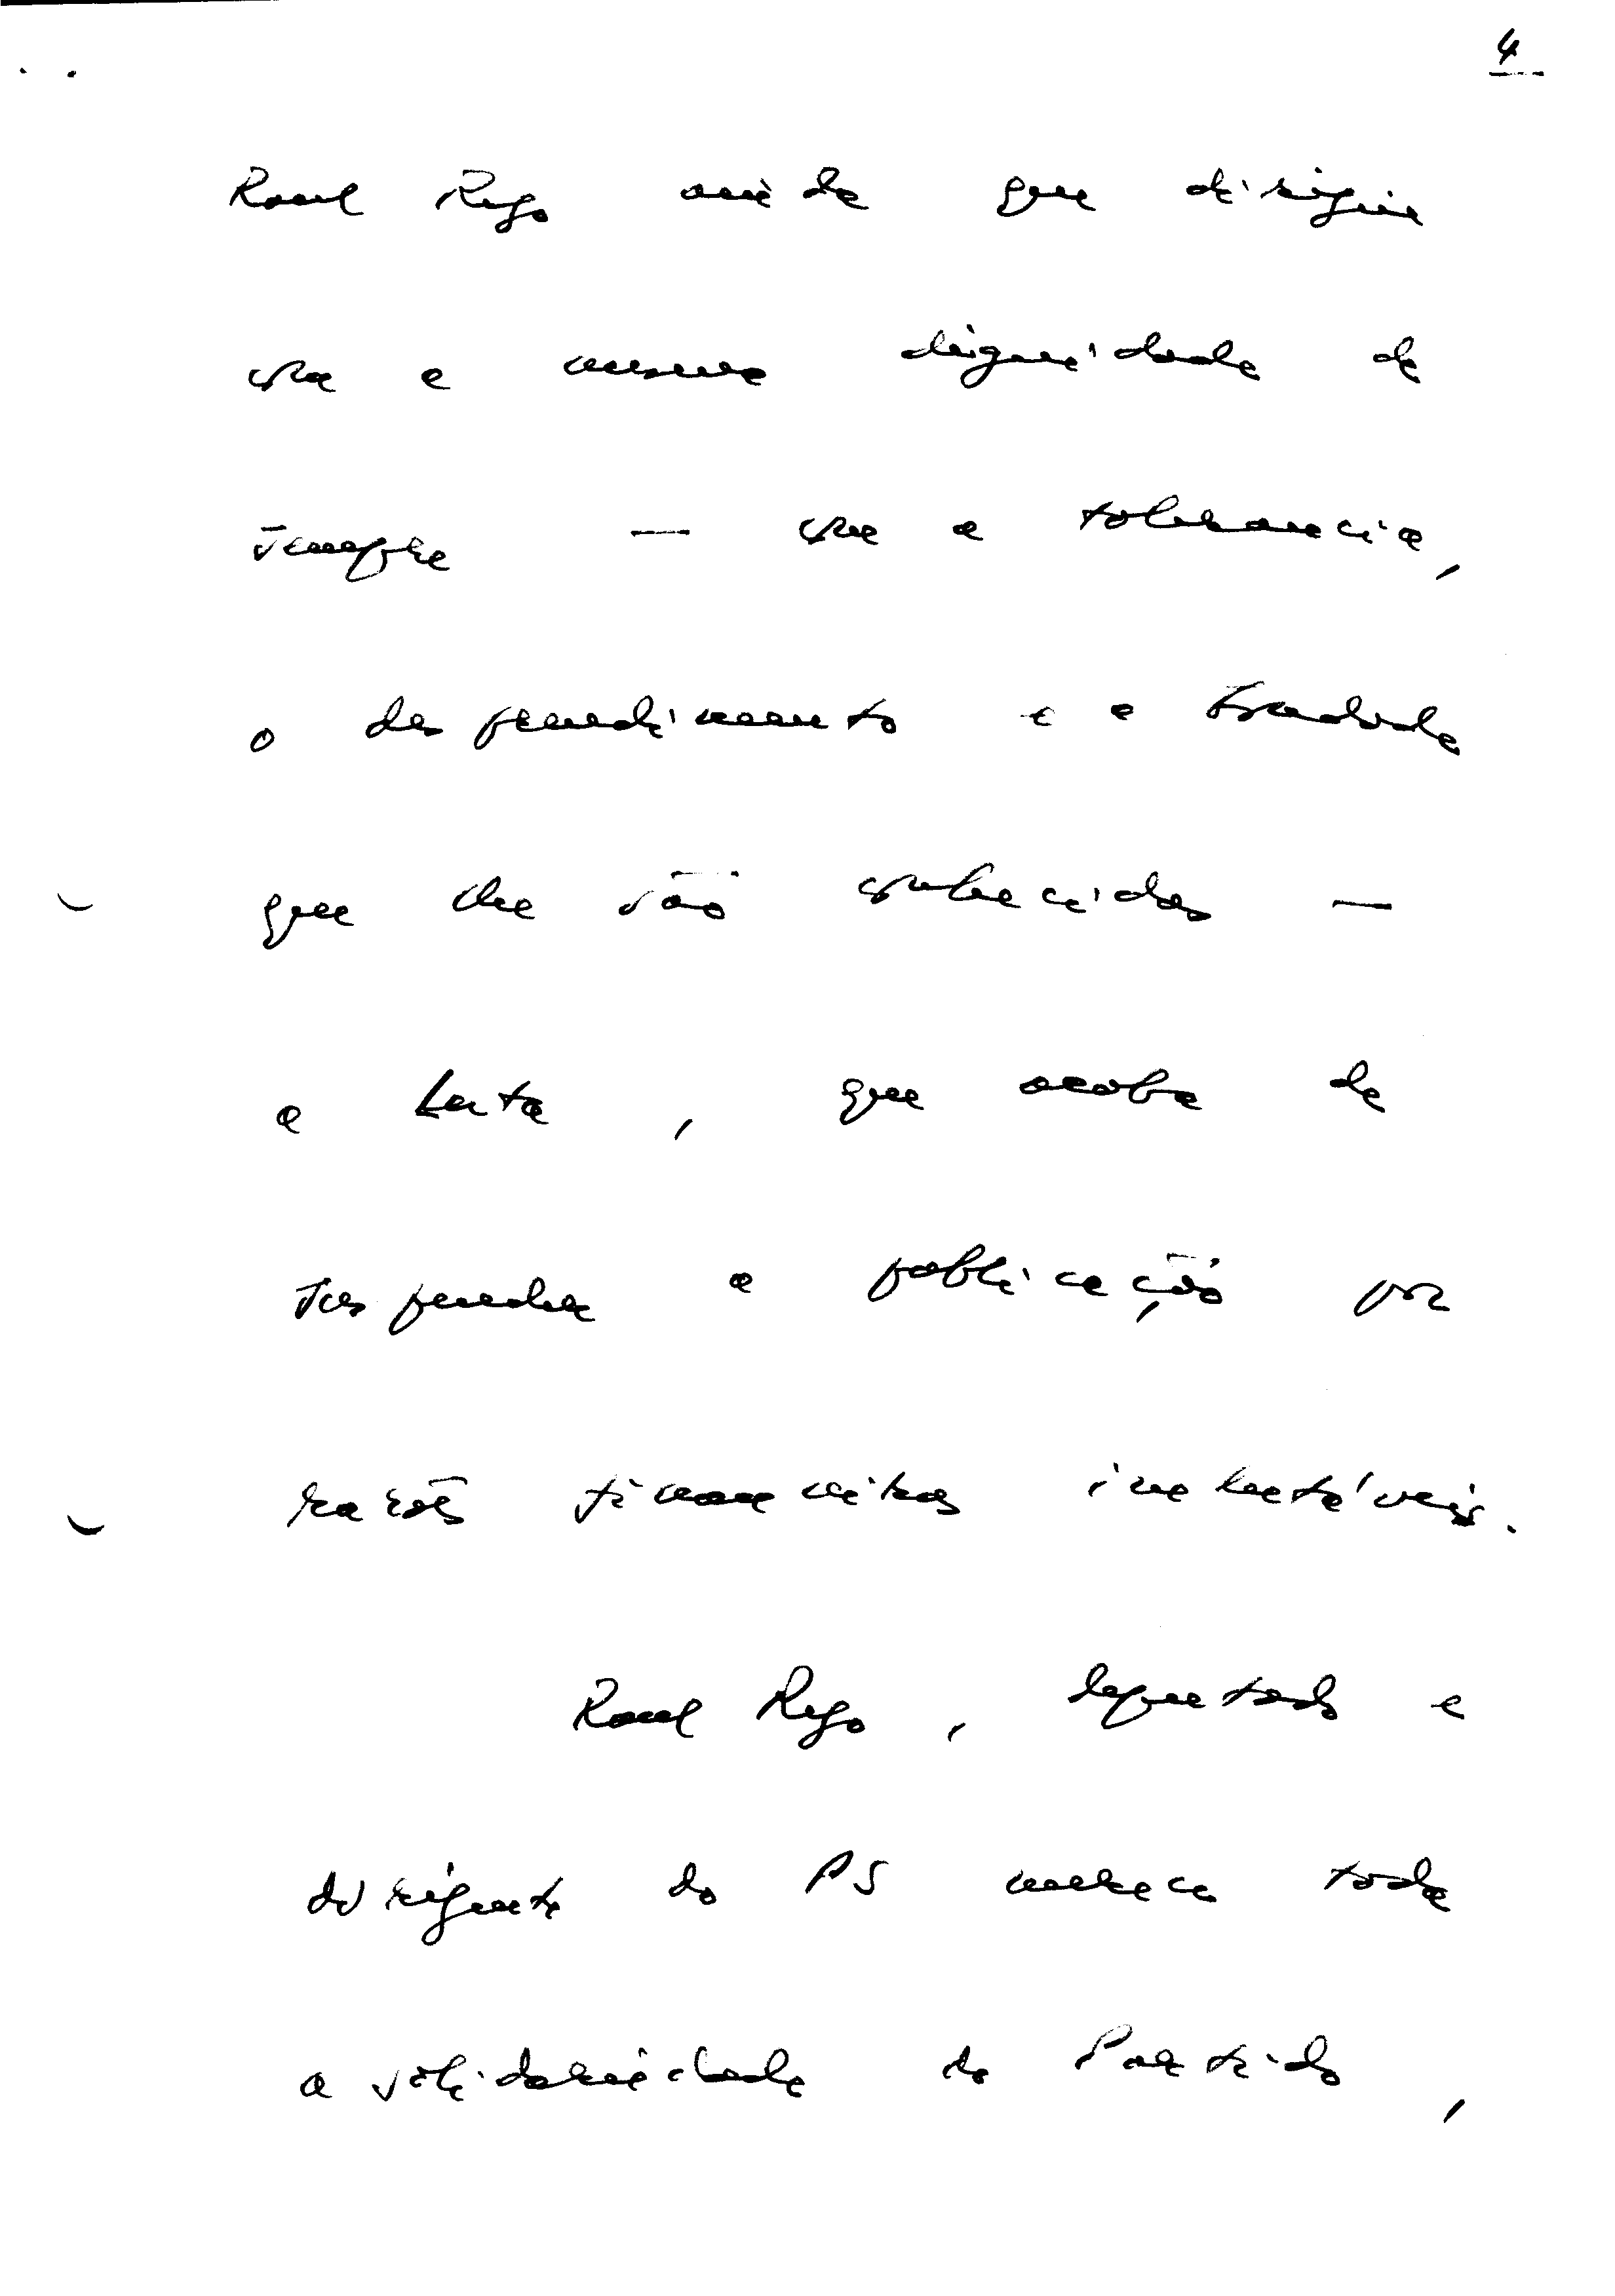 4
Raul Rego ainda que dirigiu
com a mesma dignidade de
sempre — com a tolerancia,
o desprendimento e a bondade
que lhe são conhecidos —
a Luta, que acaba de
suspender a publicação por
razões financeiras inelutáveis.
Raul Rego, deputado e
dirigente do PS merece toda
a solidariedade do Partido,